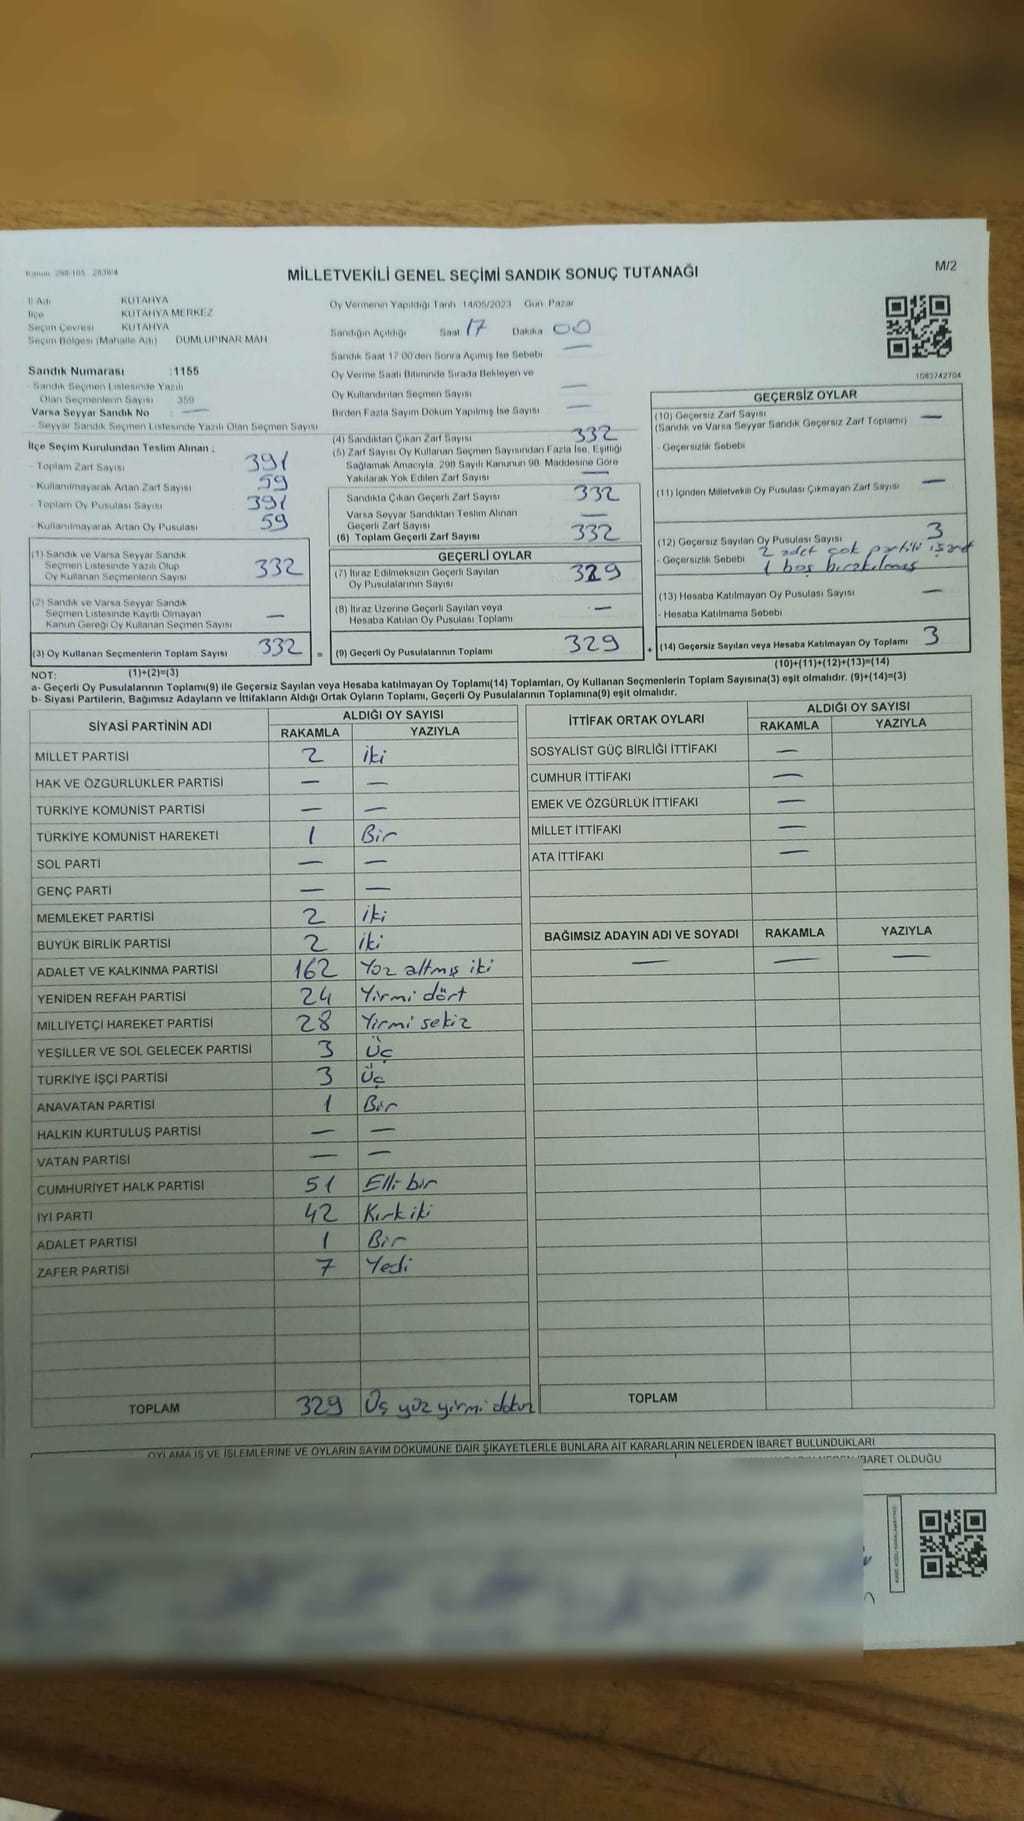 Kanun: 298/105 2839/4
MİLLETVEKİLİ GENEL SEÇİMİ SANDIK SONUÇ TUTANAĞI
M/2
İl Adı KÜTAHYA
İlçe KÜTAHYA MERKEZ
Seçim Çevresi KÜTAHYA
Seçim Bölgesi (Mahalle Adı) DUMLUPINAR MAH
Sandık Numarası :1155
- Sandık Seçmen Listesinde Yazılı
Olan Seçmenlerin Sayısı 389
Varsa Seyyar Sandık No —
- Seyyar Sandık Seçmen Listesinde Yazılı Olan Seçmen Sayısı
Oy Vermenin Yapıldığı Tarih 14/05/2023 Gün Pazar
Sandığın Açıldığı Saat 17 Dakika 00
Sandık Saat 17 00'den Sonra Açılmış İse Sebebi —
Oy Verme Saati Bitiminde Sırada Bekleyen ve
Oy Kullandırılan Seçmen Sayısı —
Birden Fazla Sayım Döküm Yapılmış İse Sayısı —
1083742704
İlçe Seçim Kurulundan Teslim Alınan ;
- Toplam Zarf Sayısı 391
- Kullanılmayarak Artan Zarf Sayısı 59
- Toplam Oy Pusulası Sayısı 391
- Kullanılmayarak Artan Oy Pusulası 59
(1) Sandık ve Varsa Seyyar Sandık
Seçmen Listesinde Yazılı Olup
Oy Kullanan Seçmenlerin Sayısı 332
(2) Sandık ve Varsa Seyyar Sandık
Seçmen Listesinde Kayıtlı Olmayan
Kanun Gereği Oy Kullanan Seçmen Sayısı —
(3) Oy Kullanan Seçmenlerin Toplam Sayısı 332 =
(4) Sandıktan Çıkan Zarf Sayısı 332
(5) Zarf Sayısı Oy Kullanan Seçmen Sayısından Fazla İse, Eşitliği
Sağlamak Amacıyla, 298 Sayılı Kanunun 98. Maddesine Göre
Yakılarak Yok Edilen Zarf Sayısı —
Sandıkta Çıkan Geçerli Zarf Sayısı 332
Varsa Seyyar Sandıktan Teslim Alınan
Geçerli Zarf Sayısı —
(6) Toplam Geçerli Zarf Sayısı 332
GEÇERLİ OYLAR
(7) İtiraz Edilmeksizin Geçerli Sayılan
Oy Pusulalarının Sayısı 329
(8) İtiraz Üzerine Geçerli Sayılan veya
Hesaba Katılan Oy Pusulası Toplamı —
(9) Geçerli Oy Pusulalarının Toplamı 329 +
GEÇERSİZ OYLAR
(10) Geçersiz Zarf Sayısı —
(Sandık ve Varsa Seyyar Sandık Geçersiz Zarf Toplamı)
- Geçersizlik Sebebi
(11) İçinden Milletvekili Oy Pusulası Çıkmayan Zarf Sayısı —
(12) Geçersiz Sayılan Oy Pusulası Sayısı 3
- Geçersizlik Sebebi 2 adet çok partili işaret
1 boş bırakılmış
(13) Hesaba Katılmayan Oy Pusulası Sayısı —
- Hesaba Katılmama Sebebi
(14) Geçersiz Sayılan veya Hesaba Katılmayan Oy Toplamı 3
NOT: (1)+(2)=(3)
(10)+(11)+(12)+(13)=(14)
a- Geçerli Oy Pusulalarının Toplamı(9) ile Geçersiz Sayılan veya Hesaba katılmayan Oy Toplamı(14) Toplamları, Oy Kullanan Seçmenlerin Toplam Sayısına(3) eşit olmalıdır. (9)+(14)=(3)
b- Siyasi Partilerin, Bağımsız Adayların ve İttifakların Aldığı Ortak Oyların Toplamı, Geçerli Oy Pusulalarının Toplamına(9) eşit olmalıdır.
SİYASİ PARTİNİN ADI ALDIĞI OY SAYISI
RAKAMLA YAZIYLA
MİLLET PARTİSİ 2 iki
HAK VE ÖZGÜRLÜKLER PARTİSİ — —
TÜRKİYE KOMÜNİST PARTİSİ — —
TÜRKİYE KOMÜNİST HAREKETİ 1 Bir
SOL PARTİ — —
GENÇ PARTİ — —
MEMLEKET PARTİSİ 2 iki
BÜYÜK BİRLİK PARTİSİ 2 iki
ADALET VE KALKINMA PARTİSİ 162 Yüz altmış iki
YENİDEN REFAH PARTİSİ 24 Yirmi dört
MİLLİYETÇİ HAREKET PARTİSİ 28 Yirmi sekiz
YEŞİLLER VE SOL GELECEK PARTİSİ 3 Üç
TÜRKİYE İŞÇİ PARTİSİ 3 Üç
ANAVATAN PARTİSİ 1 Bir
HALKIN KURTULUŞ PARTİSİ — —
VATAN PARTİSİ — —
CUMHURİYET HALK PARTİSİ 51 Elli bir
İYİ PARTİ 42 Kırk iki
ADALET PARTİSİ 1 Bir
ZAFER PARTİSİ 7 Yedi
TOPLAM 329 Üç yüz yirmi dokuz
İTTİFAK ORTAK OYLARI ALDIĞI OY SAYISI
RAKAMLA YAZIYLA
SOSYALİST GÜÇ BİRLİĞİ İTTİFAKI —
CUMHUR İTTİFAKI —
EMEK VE ÖZGÜRLÜK İTTİFAKI —
MİLLET İTTİFAKI —
ATA İTTİFAKI —
BAĞIMSIZ ADAYIN ADI VE SOYADI RAKAMLA YAZIYLA
— — —
TOPLAM
OYLAMA İŞ VE İŞLEMLERİNE VE OYLARIN SAYIM DÖKÜMÜNE DAİR ŞİKAYETLERLE BUNLARA AİT KARARLARIN NELERDEN İBARET BULUNDUKLARI
İBARET OLDUĞU